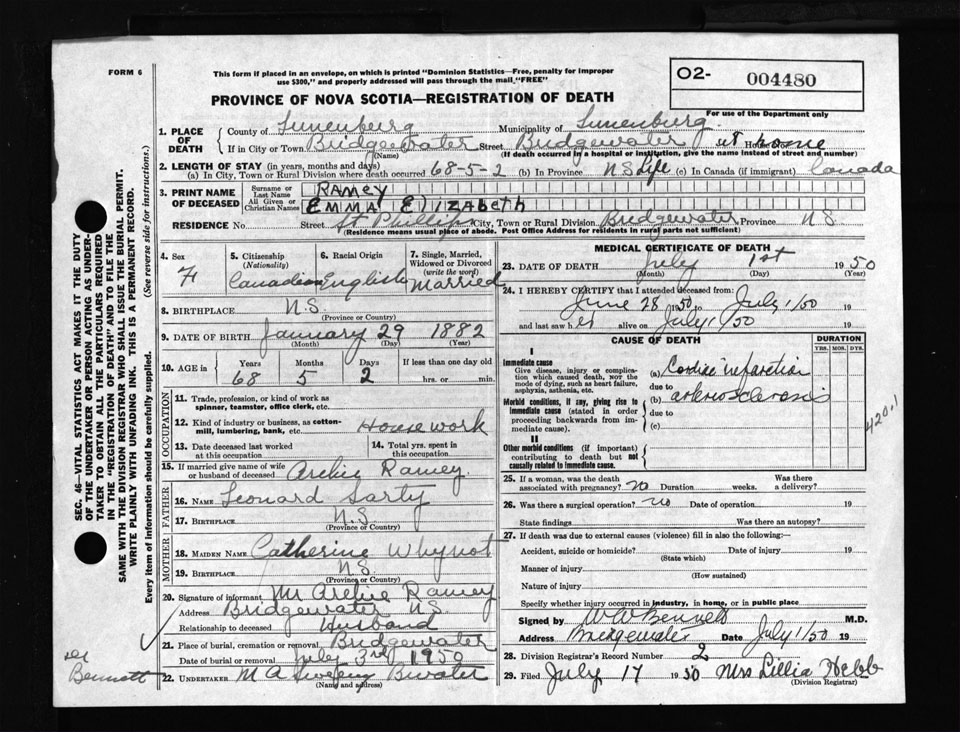 FORM 6
This form if placed in an envelope, on which is printed "Dominion Statistics—Free, penalty for improper
use $300," and properly addressed will pass through the mail "FREE"
O2- 004480
PROVINCE OF NOVA SCOTIA—REGISTRATION OF DEATH
For use of the Department only
1. PLACE OF DEATH
County of Lunenburg Municipality of Lunenburg
If in City or Town Bridgewater Street Bridgewater at home
(Name) (If death occurred in a hospital or institution, give the name instead of street and number)
2. LENGTH OF STAY (in years, months and days)
(a) In City, Town or Rural Division where death occurred 68-5-2 (b) In Province NS Life (c) In Canada (if immigrant) Canada
3. PRINT NAME OF DECEASED
Surname or Last Name RAMEY
All Given or Christian Names EMMA ElizabEth
RESIDENCE No. Street St Phillips City, Town or Rural Division Bridgewater Province NS
(Residence means usual place of abode. Post Office Address for residents in rural parts not sufficient)
4. Sex F
5. Citizenship (Nationality) Canadian
6. Racial Origin English
7. Single, Married, Widowed or Divorced (write the word) Married
8. BIRTHPLACE N.S.
(Province or Country)
9. DATE OF BIRTH January 29 1882
(Month) (Day) (Year)
10. AGE in Years Months Days If less than one day old
68 5 2 hrs. or min.
OCCUPATION
11. Trade, profession, or kind of work as
spinner, teamster, office clerk, etc.
12. Kind of industry or business, as cotton-
mill, lumbering, bank, etc. Housework
13. Date deceased last worked at this occupation
14. Total yrs. spent in this occupation
15. If married give name of wife
or husband of deceased Archie Ramey.
FATHER
16. NAME Leonard Sarty
17. BIRTHPLACE N.S.
(Province or Country)
MOTHER
18. MAIDEN NAME Catherine Whynot
19. BIRTHPLACE NS.
(Province or Country)
20. Signature of informant Mr Archie Ramey
Address Bridgewater NS
Relationship to deceased Husband
21. Place of burial, cremation or removal Bridgewater
Date of burial or removal July 3rd 1950
22. UNDERTAKER M A Sweeny Bwater
(Name and address)
MEDICAL CERTIFICATE OF DEATH
23. DATE OF DEATH July 1st 1950
(Month) (Day) (Year)
24. I HEREBY CERTIFY that I attended deceased from
June 28 1950 to July 1/50 19
and last saw her alive on July 1/50 19
CAUSE OF DEATH
DURATION
YRS. MOS. DYS.
I
Immediate cause
Give disease, injury or complica-
tion which caused death, NOT the
mode of dying, such as heart failure,
asphyxia, asthenia, etc.
(a) Cardiac infarction
due to
Morbid conditions, if any, giving rise to
immediate cause (stated in order
proceeding backwards from
immediate cause).
(b) arteriosclerosis
due to
(c)
420.1
II
Other morbid conditions (if important)
contributing to death but not
causally related to immediate cause.
25. If a woman, was the death
associated with pregnancy? no Duration weeks. Was there a delivery?
26. Was there a surgical operation? no Date of operation 19
State findings Was there an autopsy?
27. If death was due to external causes (violence) fill in also the following:—
Accident, suicide or homicide? Date of injury 19
(State which)
Manner of injury
(How sustained)
Nature of injury
Specify whether injury occurred in industry, in home, or in public place
Signed by W W Bennett M.D.
Address Bridgewater Date July 1/50 19
28. Division Registrar's Record Number 2
29. Filed July 17 1950 Mrs Lillia Hebb
(Division Registrar)
SEC. 46—VITAL STATISTICS ACT MAKES IT THE DUTY
OF THE UNDERTAKER OR PERSON ACTING AS UNDER-
TAKER TO OBTAIN ALL THE PARTICULARS REQUIRED
IN THE "REGISTRATION OF DEATH" AND TO FILE THE
SAME WITH THE DIVISION REGISTRAR WHO SHALL ISSUE THE BURIAL PERMIT.
WRITE PLAINLY WITH UNFADING INK. THIS IS A PERMANENT RECORD.
Every item of information should be carefully supplied. (See reverse side for instructions.)
Bennett